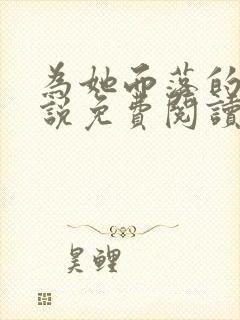 為她而落的
說免費閱讀
昊鯉